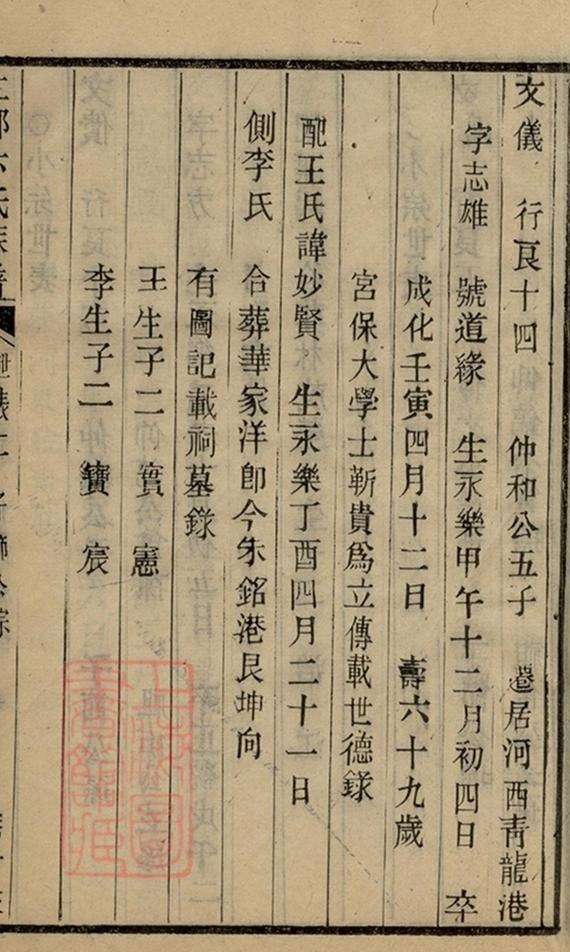 文儀 行良十四 仲和公五子 遷居河西靑龍港
字志雄 號道緣 生永樂甲午十二月初四日 卒
成化壬寅四月十二日 壽六十九歲
宮保大學士靳貴爲立傳載世德錄
配王氏諱妙賢 生永樂丁酉四月二十一日
側李氏 合葬華家洋卽今朱銘港艮坤向
有圖記載祠墓錄
王生子二 實 憲
李生子二 寶 宸